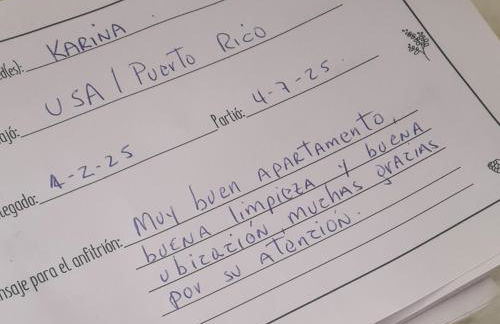 d(es): KARINA.
ajó: USA / Puerto Rico
legada: 4-2-25 Partió: 4-7-25.
nsaje para el anfitrión: Muy buen APARTAmento,
buena limpieza y buena
ubicación, muchas gracias
por su Atención.